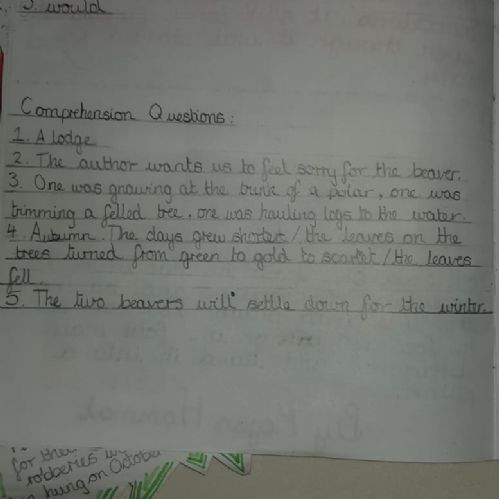 3. would
Comprehension Questions:
1. A lodge
2. The author wants us to feel sorry for the beaver.
3. One was gnawing at the trunk of a polar, one was
trimming a felled tree, one was hauling logs to the water.
4. Autumn. The days grew shorter/the leaves on the
trees turned from green to gold to scarlet/the leaves
fell.
5. The two beavers will settle down for the winter.
for the
robberies
hung on October